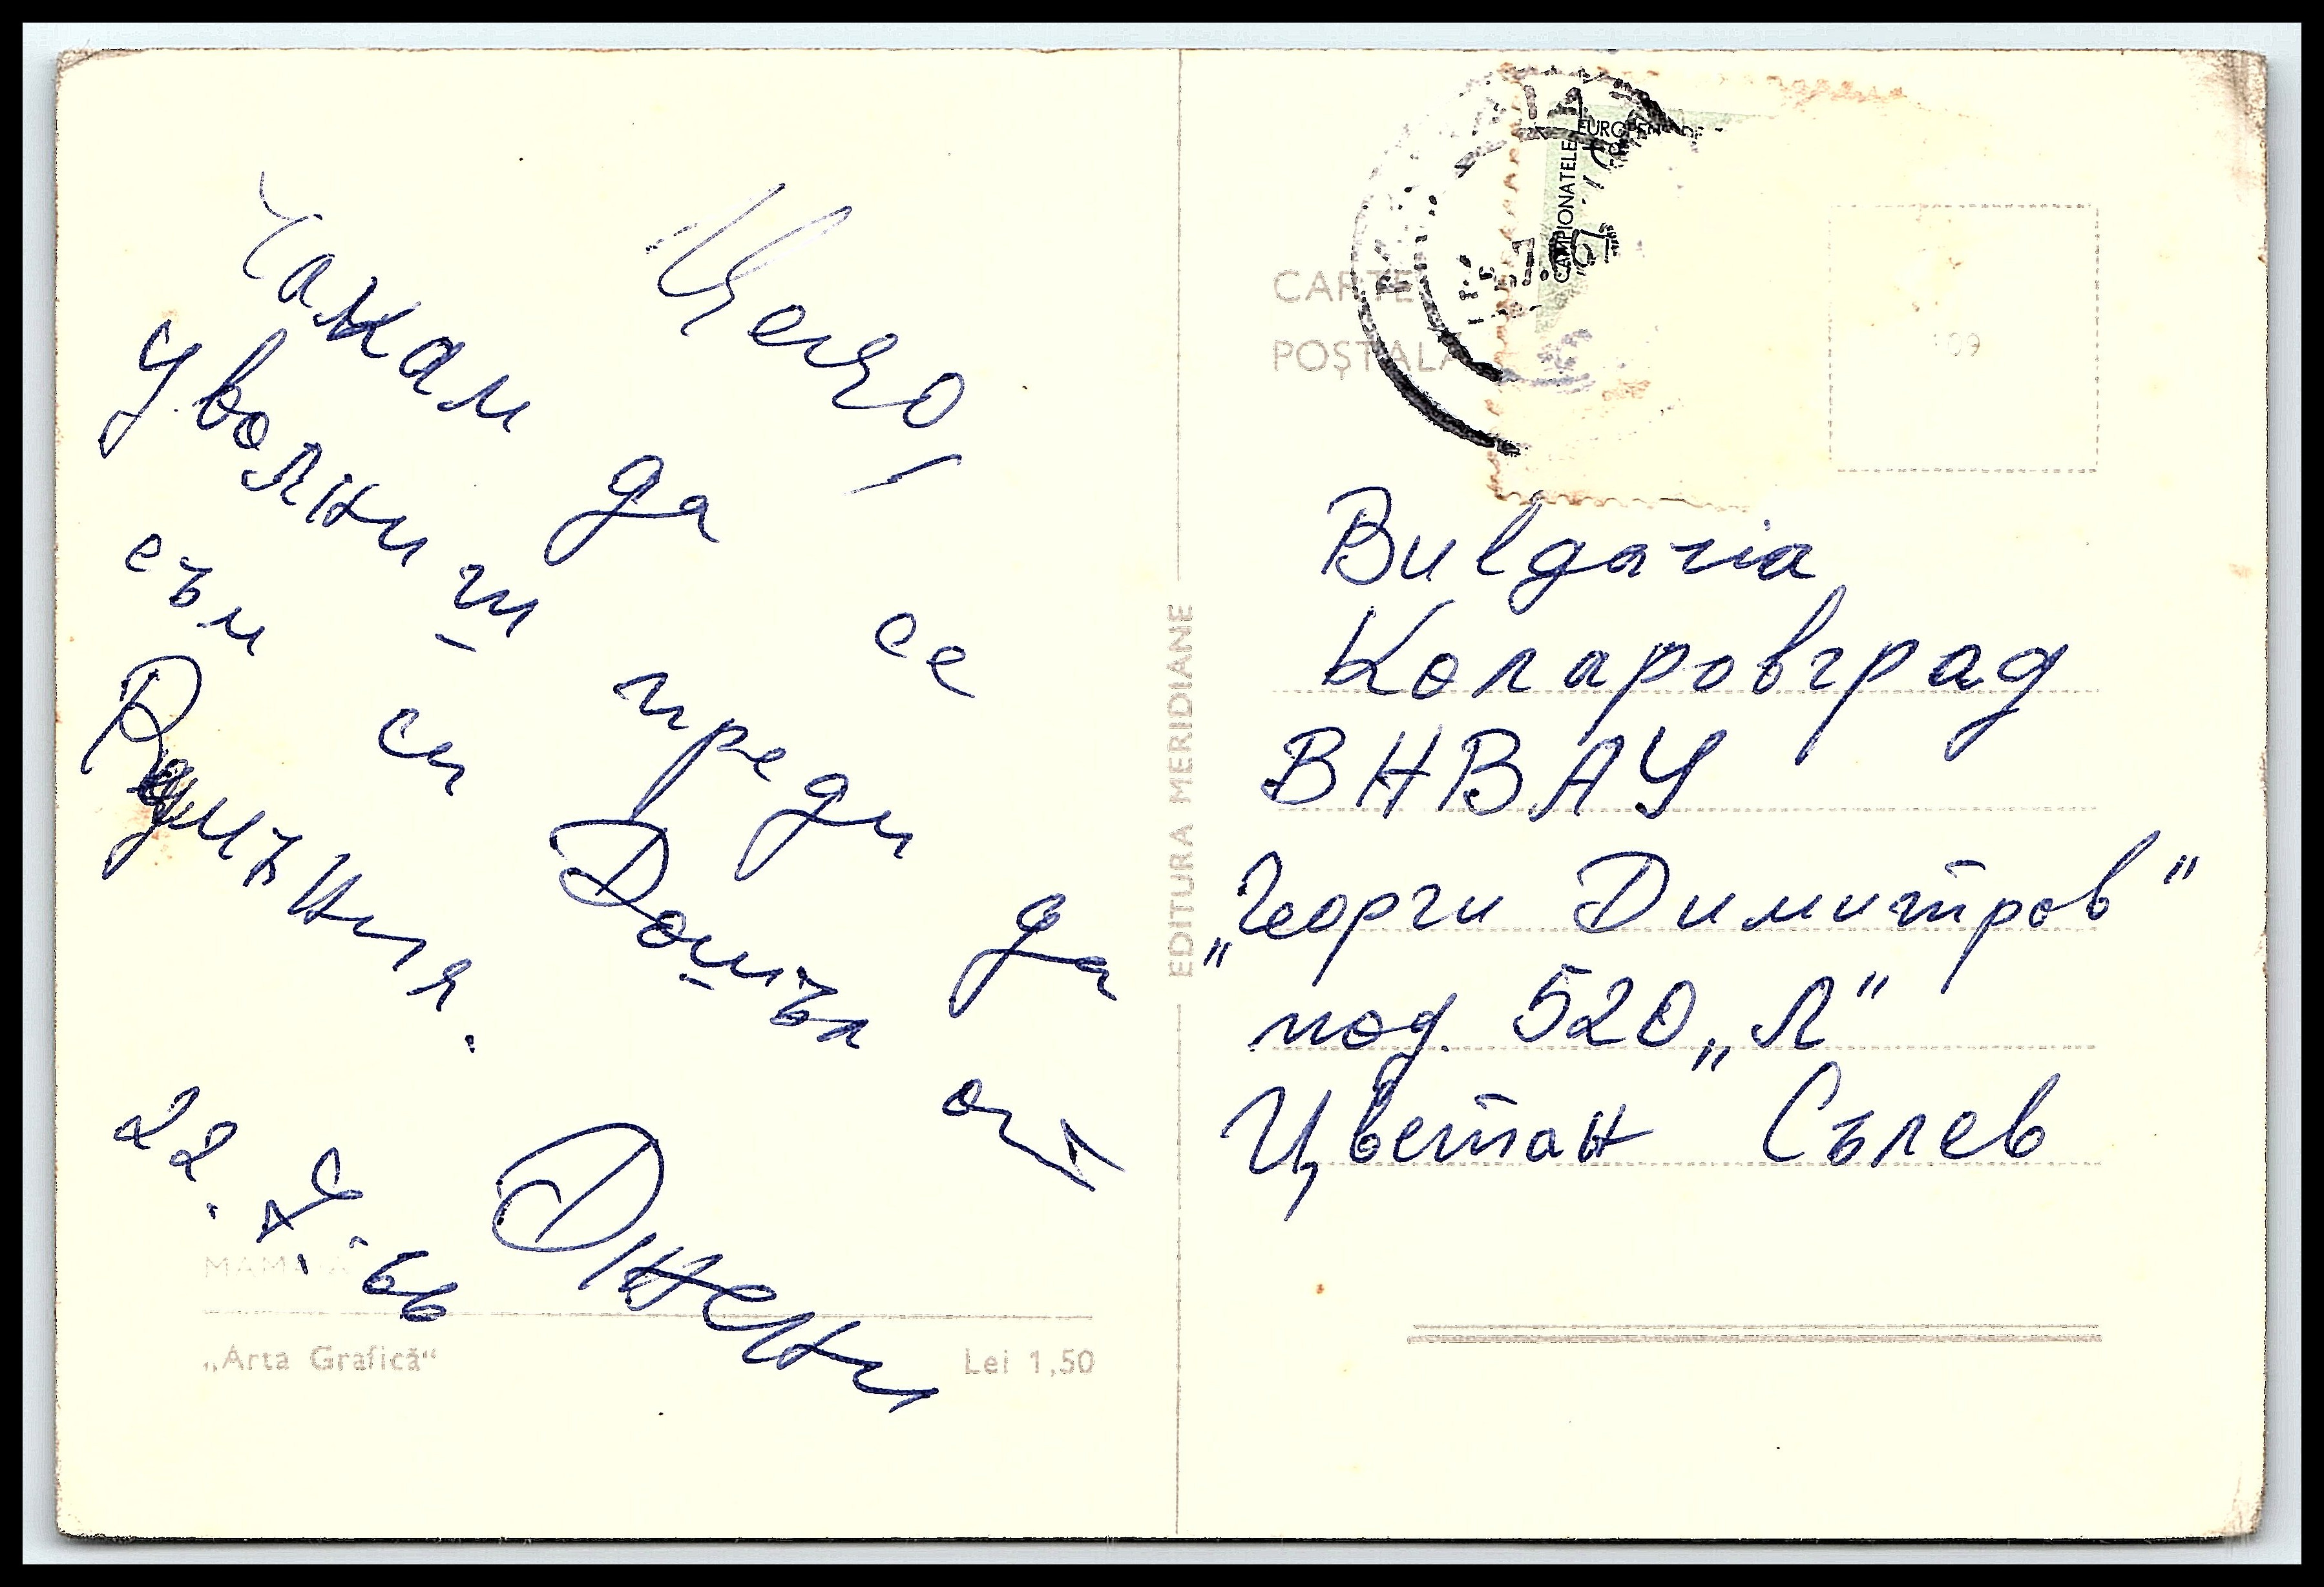 Цецо,
Чакам да се
уволниш преди да
съм си Дошъл от
Румъния.
22. 7. 66
Джени
„Arta Grafică“
Lei 1,50
EDITURA MERIDIANE
CAMPIONATELE
EUROPENE DE
CARTE
POȘTALĂ
Bulgaria
Коларовград
ВНВАУ
„Георги Димитров"
под. 520 „Л"
Цветан Сълев